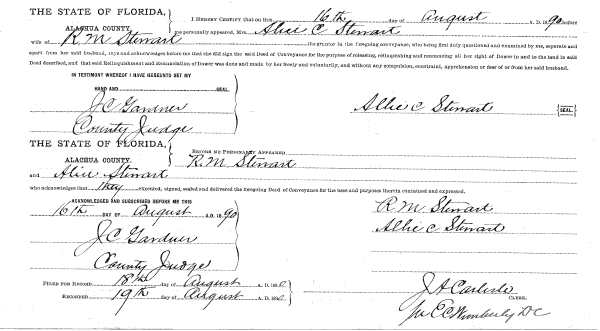 THE STATE OF FLORIDA,
ALACHUA COUNTY.
I HEREBY CERTIFY that on this 16th day of August A. D. 1890 before
me personally appeared, Mrs. Alice C Stewart
wife of R. M Stewart the grantor in the foregoing conveyance, who being first duly questioned and examined by me, separate and
apart from her said husband, says and acknowledges before me that she did sign the said Deed of Conveyance for the purpose of releasing, relinquishing and renouncing all her right of Dower in and to the land in said
Deed described, and that said Relinquishment and Renunciation of Dower was done and made by her freely and voluntarily, and without any compulsion, constraint, apprehension or fear of or from her said husband.
IN TESTIMONY WHEREOF I HAVE HEREUNTO SET MY
HAND AND SEAL.
J C Gardner
County Judge
Allie C Stewart SEAL
THE STATE OF FLORIDA,
ALACHUA COUNTY.
BEFORE ME PERSONALLY APPEARED
R. M Stewart
and Alice Stewart
who acknowledges that they executed, signed, sealed and delivered the foregoing Deed of Conveyance for the uses and purposes therein contained and expressed.
ACKNOWLEDGED AND SUBSCRIBED BEFORE ME THIS
16th DAY OF August A. D. 1890
J C Gardner
County Judge
R M Stewart
Allie C Stewart
FILED FOR RECORD 18th day of August A. D. 1890
RECORDED 19th day of August A. D. 1890
J A Carlisle
CLERK.
E C Wimberly D C